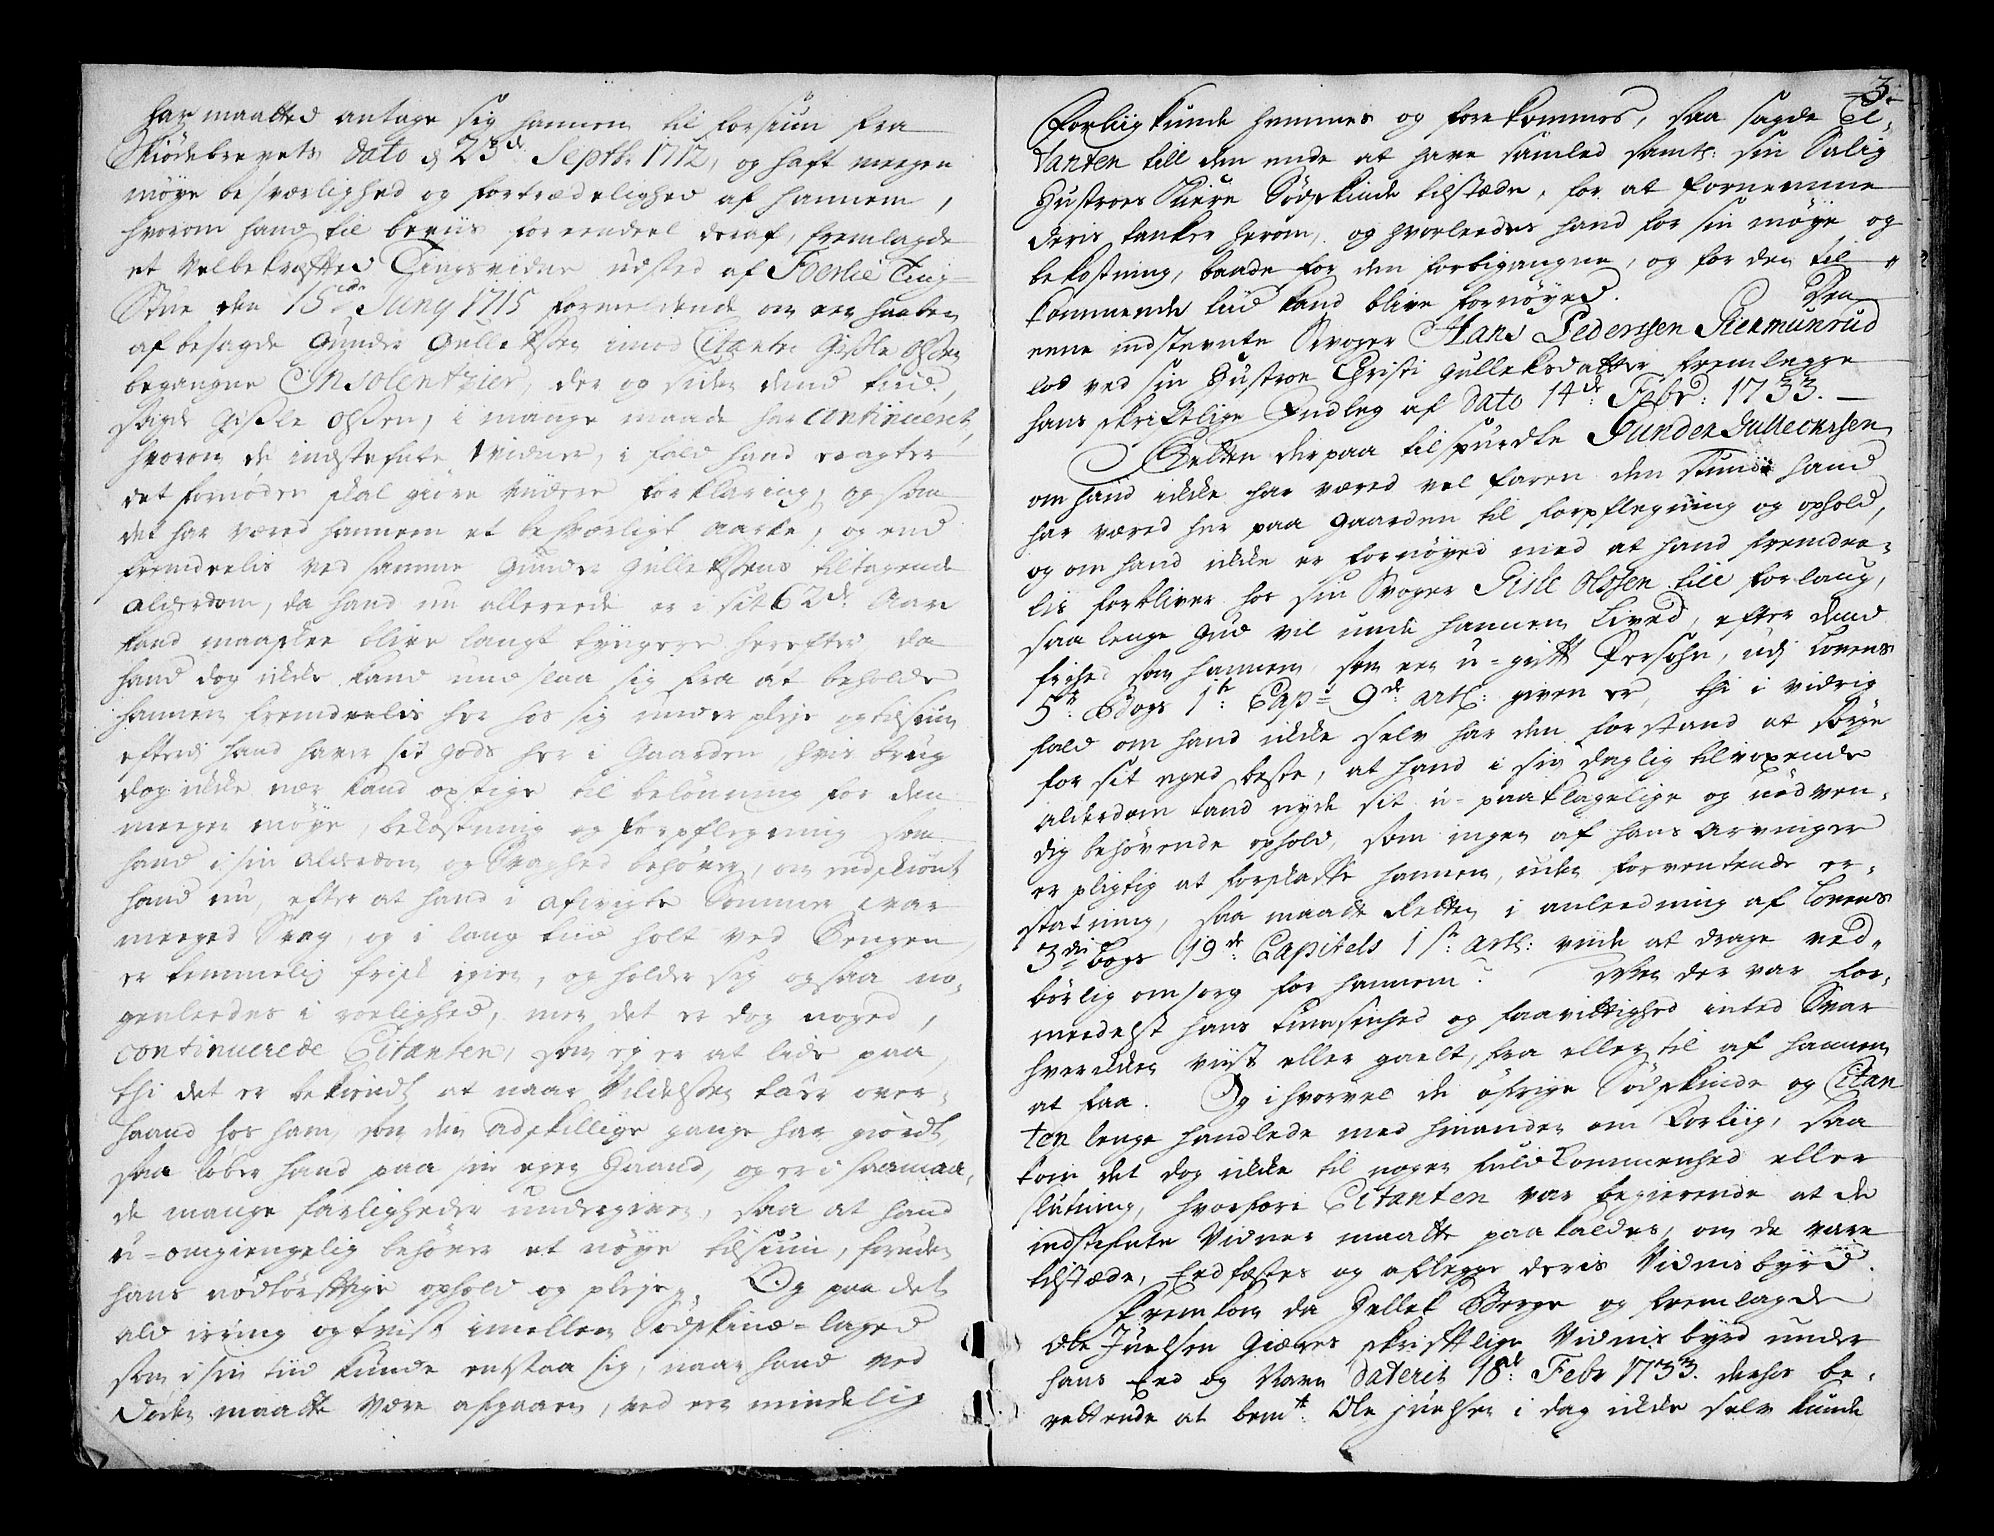 har maatted antage sig hannem til forsiun fra
Skiödebrevets dato d 23de Septbr: 1712, og haft megen
möye besværlighed og fortrædelighed af hannem,
hvorom hand til beviis for eendeel deraf, fremlagde
et Velbekræfted Tingsvidne udsted af Foerlie Ting-
Stue den 15de Juny 1715 formeldende om een haaben
af besagde Gunder Gulleksen imod Citanten Gisle Olsen
begangne Insolentzier, der og siden dend tiid,
sagde Gisle Olsen, i mange maade har continueret,
hvorom de indstefnte Vidner, i fald hand eragter
det fornöden skal giöre videre forklaring, og som
det har været hannem et besværligt aarke, og end
fremdeelis ved samme Gunder Gulleksens tiltagende
alderdom, da hand nu allereede er i sit 62de Aar
kand maaskee blive langt tyngere herefter da
hand dog ikke kand undslaa sig fra at beholde
hannem fremdeelis her hos sig under pleje og tilsiun
efterdi hand haver sit gods her i Gaarden, hvis brug
dog ikke nær kand opstige til belönning for den
meegen möye, bekostning og forpflegning som
hand i sin alderdom og Svaghed behöver, om endskiönt
hand nu, efter at hand i afvigte Sommer var
meeged Svag, og i lang tiid holt ved Sengen,
er temmelig frisk igien, og holder sig ogsaa no-
genleedes i roelighed, men det er dog noged,
continuerede Citanten, som ej er at lide paa
thi det er bekiendt at naar Vildelsen taer over-
haand hos ham, som den adskillige gange har giordt,
saa löber hand paa sin egen Haand, og er i saa maa-
de mange farligheder undergiven, saa at hand
u-omgiengelig behöver et nöye tilsiun, foruden
hans nödtörfftige ophold og pleje. Og paa det
ald irring og tvist imellem Södskind-laged
som i sin tiid kunde entstaa sig, naar hand ved
Döden maatte være afgaaen, ved een mindelig
3.
Forliig kunde hemmes og forekommes, saa sagde Ci-
tanten till den ende at have samled samtl: sin Salig
Hustroes Kiere Södskinde tilstæde, for at fornemme
deris tanker herom, og hvorleedes hand for sin möye og
bekostning, baade for den forbigangne, og for den til-
kommende tiid kand blive fornöyed. Den
eene indstevnte Svoger Hans Pedersen Giermunrud
lod ved sin Hustroe Christi Gulleksdatter fremlegge
hans skriftlige Indleg af dato 14de Febr: 1733. —
Retten derpaa tilspurdte Gunder Gullecksen
om hand ikke har været vel faren den stund hand
har været her paa Gaarden til forpflegning og ophold,
og om hand ikke er fornöyed med at hand fremdee-
lis forbliver hos sin Svoger Gisle Olssen till forlaug,
saa lenge Gud vil unde hannem Lived, efter dend
frihed som hannem, som een u-gift Persohn, udj Lovens
5te Bogs 1te Cap: 9de art: given er, thi i vidrig
fald om hand ikke selv har den forstand at sörge
for sit eged beste, at hand i sin daglig tilvoxende
alderdom kand nyde sit u-paaklagelige og nödven-
dig behövende ophold, som ingen af hans arvinger
er pligtig at forskaffe hannem, uden forventende er-
statning, saa maatte Retten i anleedning af Lovens
3die Bogs 19de Capitels 1ste art: vide at drage ved-
börlig omsorg for hannem? Men der var for-
meedelst hans tumsenhed og faavittighed inted Svar
hverken viist eller galt, fra eller til af hannem
at faa. Og ihvorvel de öfrige Södskinde og Citan
ten lenge handlede med hinanden om Forliig, saa
kom det dog ikke til nogen fuldkommenhed eller
slutning, hvorfore Citanten var begierende at de
indstefnte Vidner maatte paakaldes, om de vare
tilstæde, Eedfæstes og aflegge deris Vidnisbyrd.
Fremkom da Gullek Berge og fremlagde
Ole Juelsen Giæves skrifftlige Vidnisbyrd under
hans Eed og Navn Daterit 18de Febr 1733. derhos be-
rettende at bemte: Ole Juelsen i dag ikke selv kunde